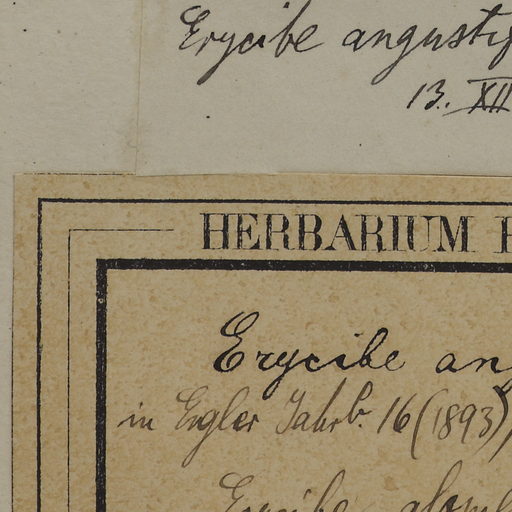 Erycibe angustif
13. XII
HERBARIUM
Erycibe an
in Engler Jahrb. 16 (1893),
Erycibe glom